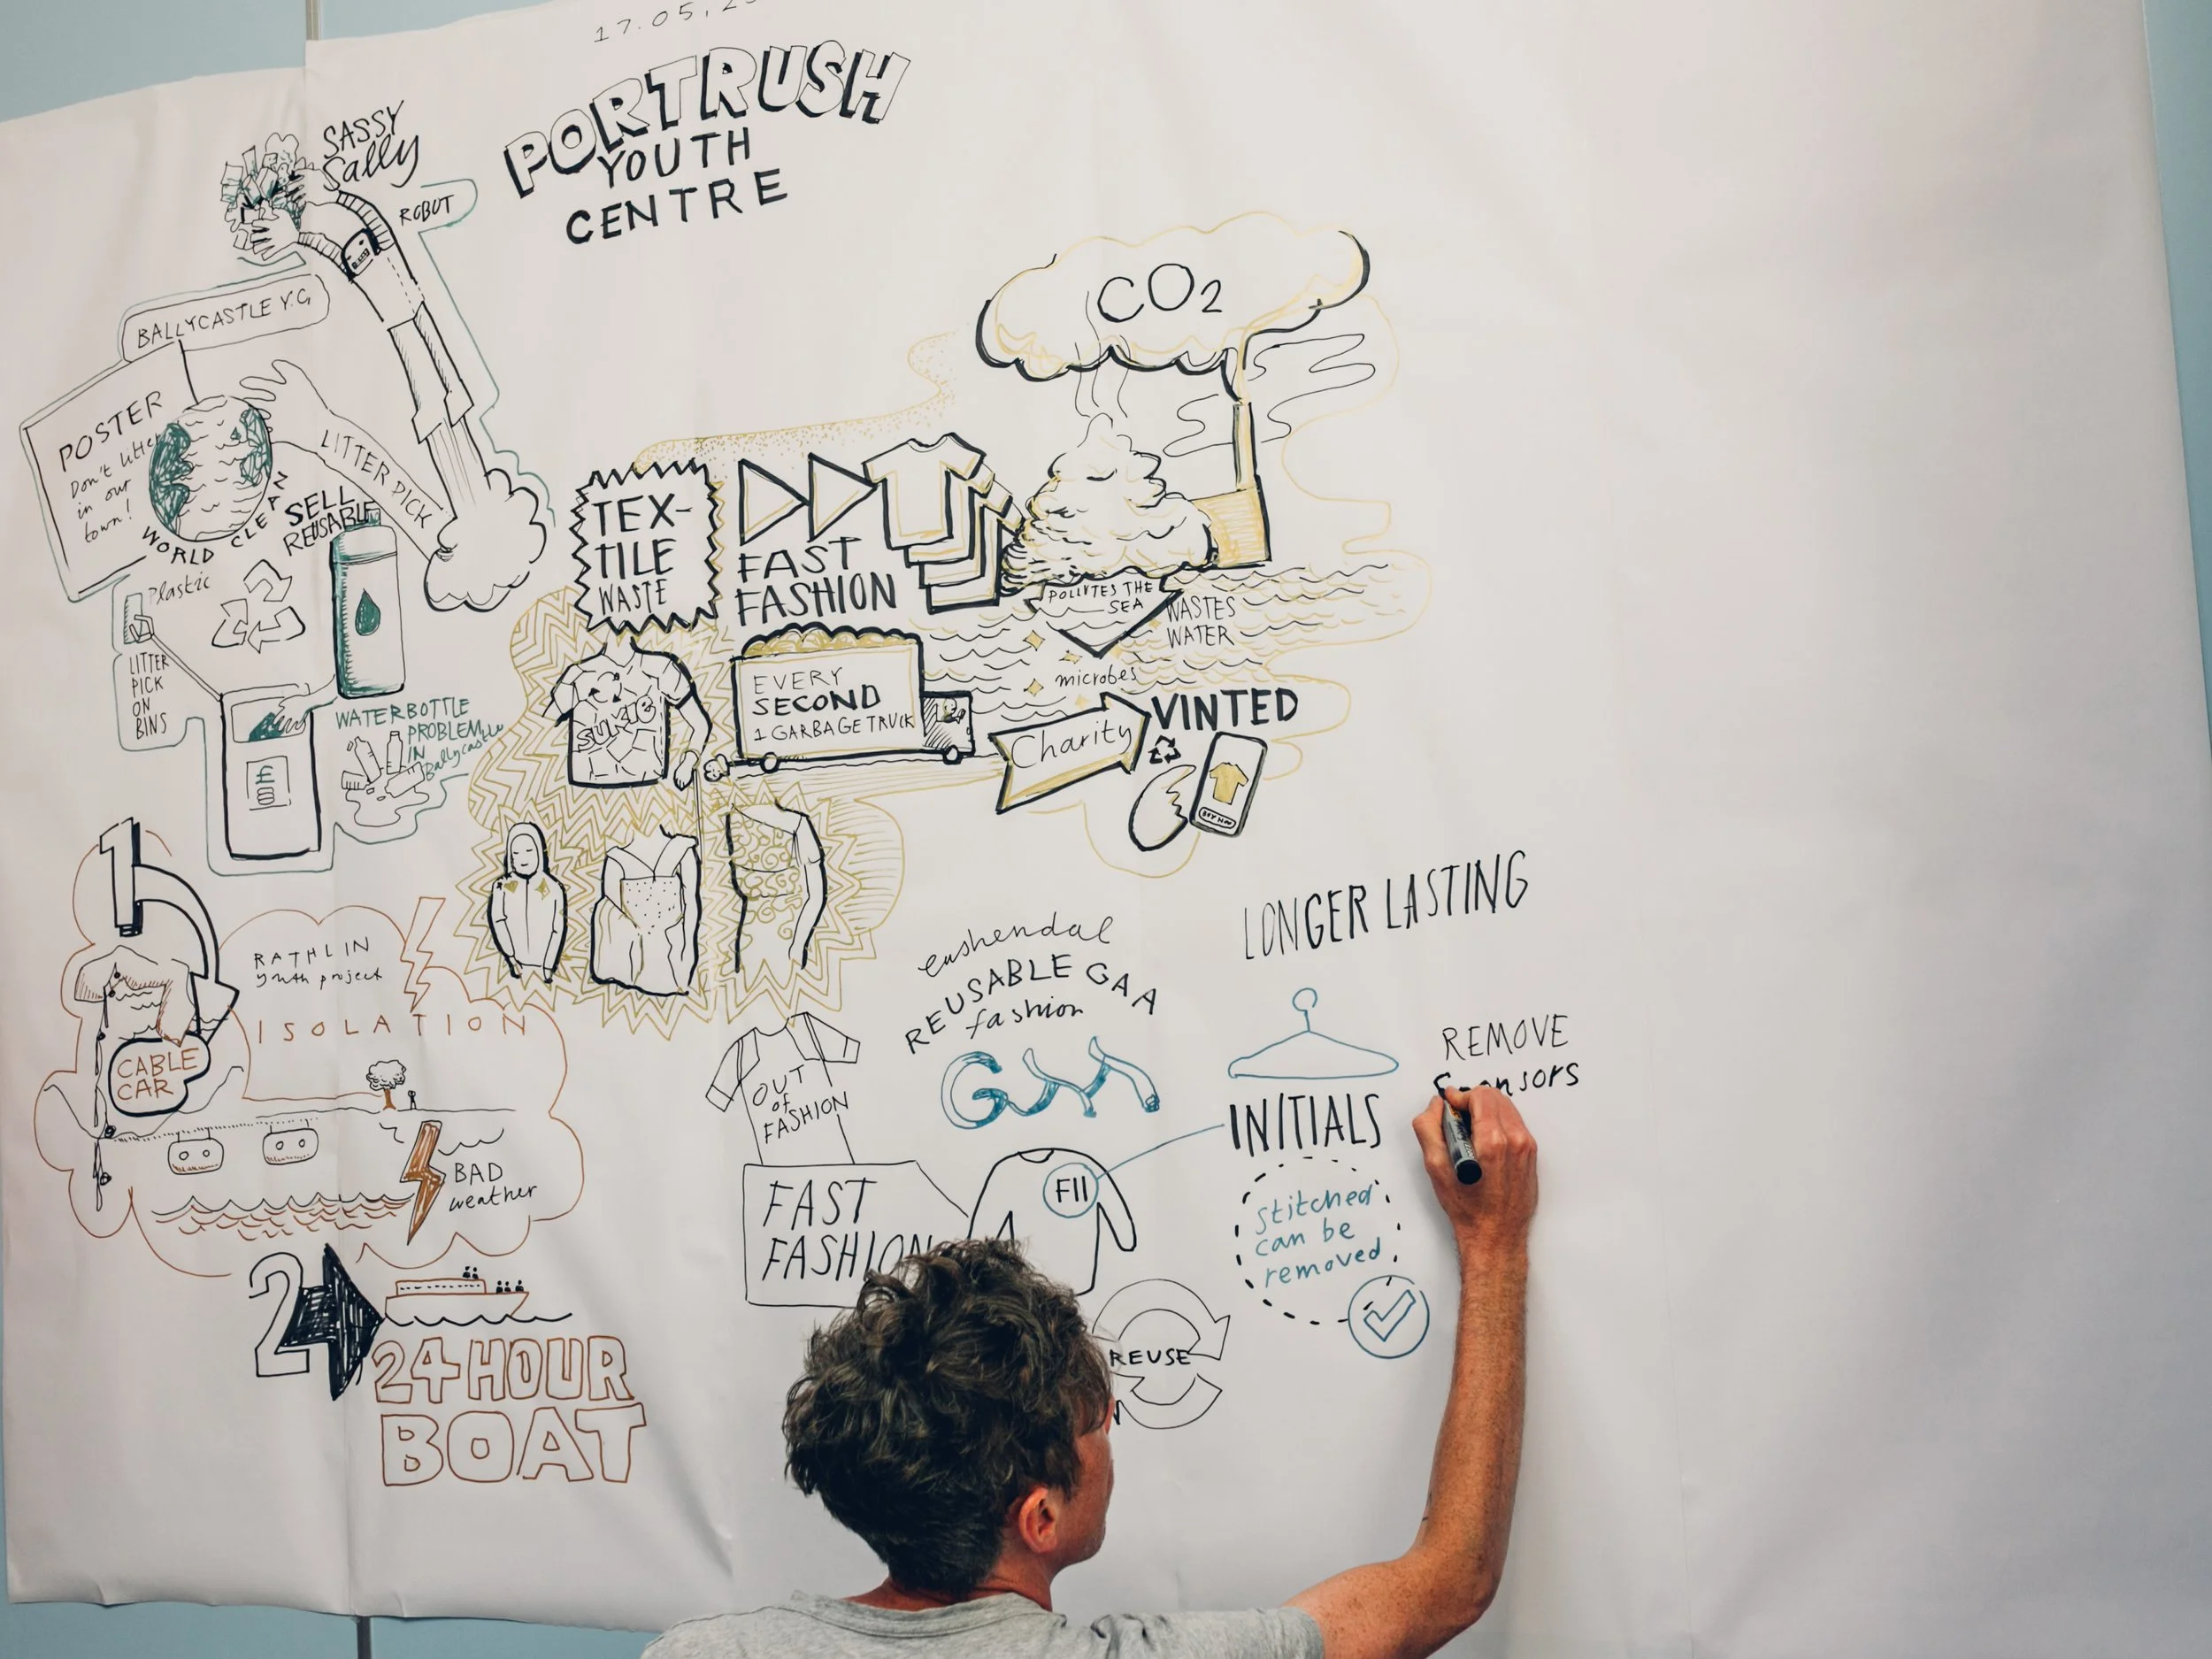 17.05.2
PORTRUSH
YOUTH
CENTRE
SASSY
Sally
ROBOT
BALLYCASTLE Y.G
POSTER
Don't litter
in our
town!
WORLD CLEAN
LITTER PICK
SELL
REUSABLE
Plastic
LITTER
PICK
ON
BINS
£
WATERBOTTLE
PROBLEM
IN
Ballycastle
CO2
TEX-
TILE
WASTE
FAST
FASHION
POLLUTES THE
SEA
WASTES
WATER
microbes
EVERY
SECOND
1 GARBAGE TRUCK
Charity
VINTED
BUY NOW
1
RATHLIN
youth project
ISOLATION
CABLE
CAR
BAD
weather
2
24 HOUR
BOAT
cushendal
REUSABLE GAA
fashion
GAA
OUT
of
FASHION
FAST
FASHION
FII
REUSE
LONGER LASTING
INITIALS
stitched
can be
removed
REMOVE
Sponsors